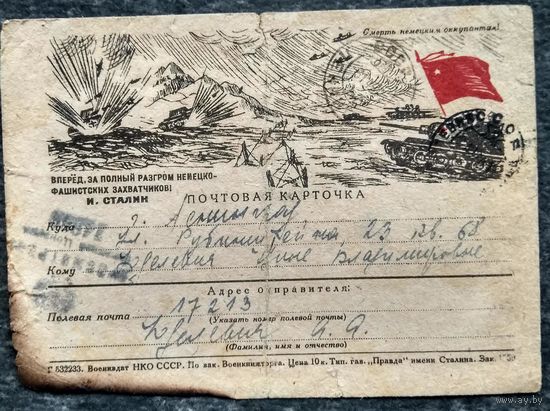 Смерть немецким оккупантам!
ВПЕРЁД, ЗА ПОЛНЫЙ РАЗГРОМ НЕМЕЦКО-
ФАШИСТСКИХ ЗАХВАТЧИКОВ!
И. СТАЛИН
ПОЧТОВАЯ КАРТОЧКА
Куда г.
ул. Рубинштейна, 23 кв. 68
Кому Владимировне
Адрес отправителя:
Полевая почта 17213
(Указать номер полевой почты)
(Фамилия, имя и отчество)
Г 532233. Воениздат НКО СССР. По зак. Военкниготорга. Цена 10 к. Тип. газ. „Правда“ имени Сталина. Зак.
www.ay.by